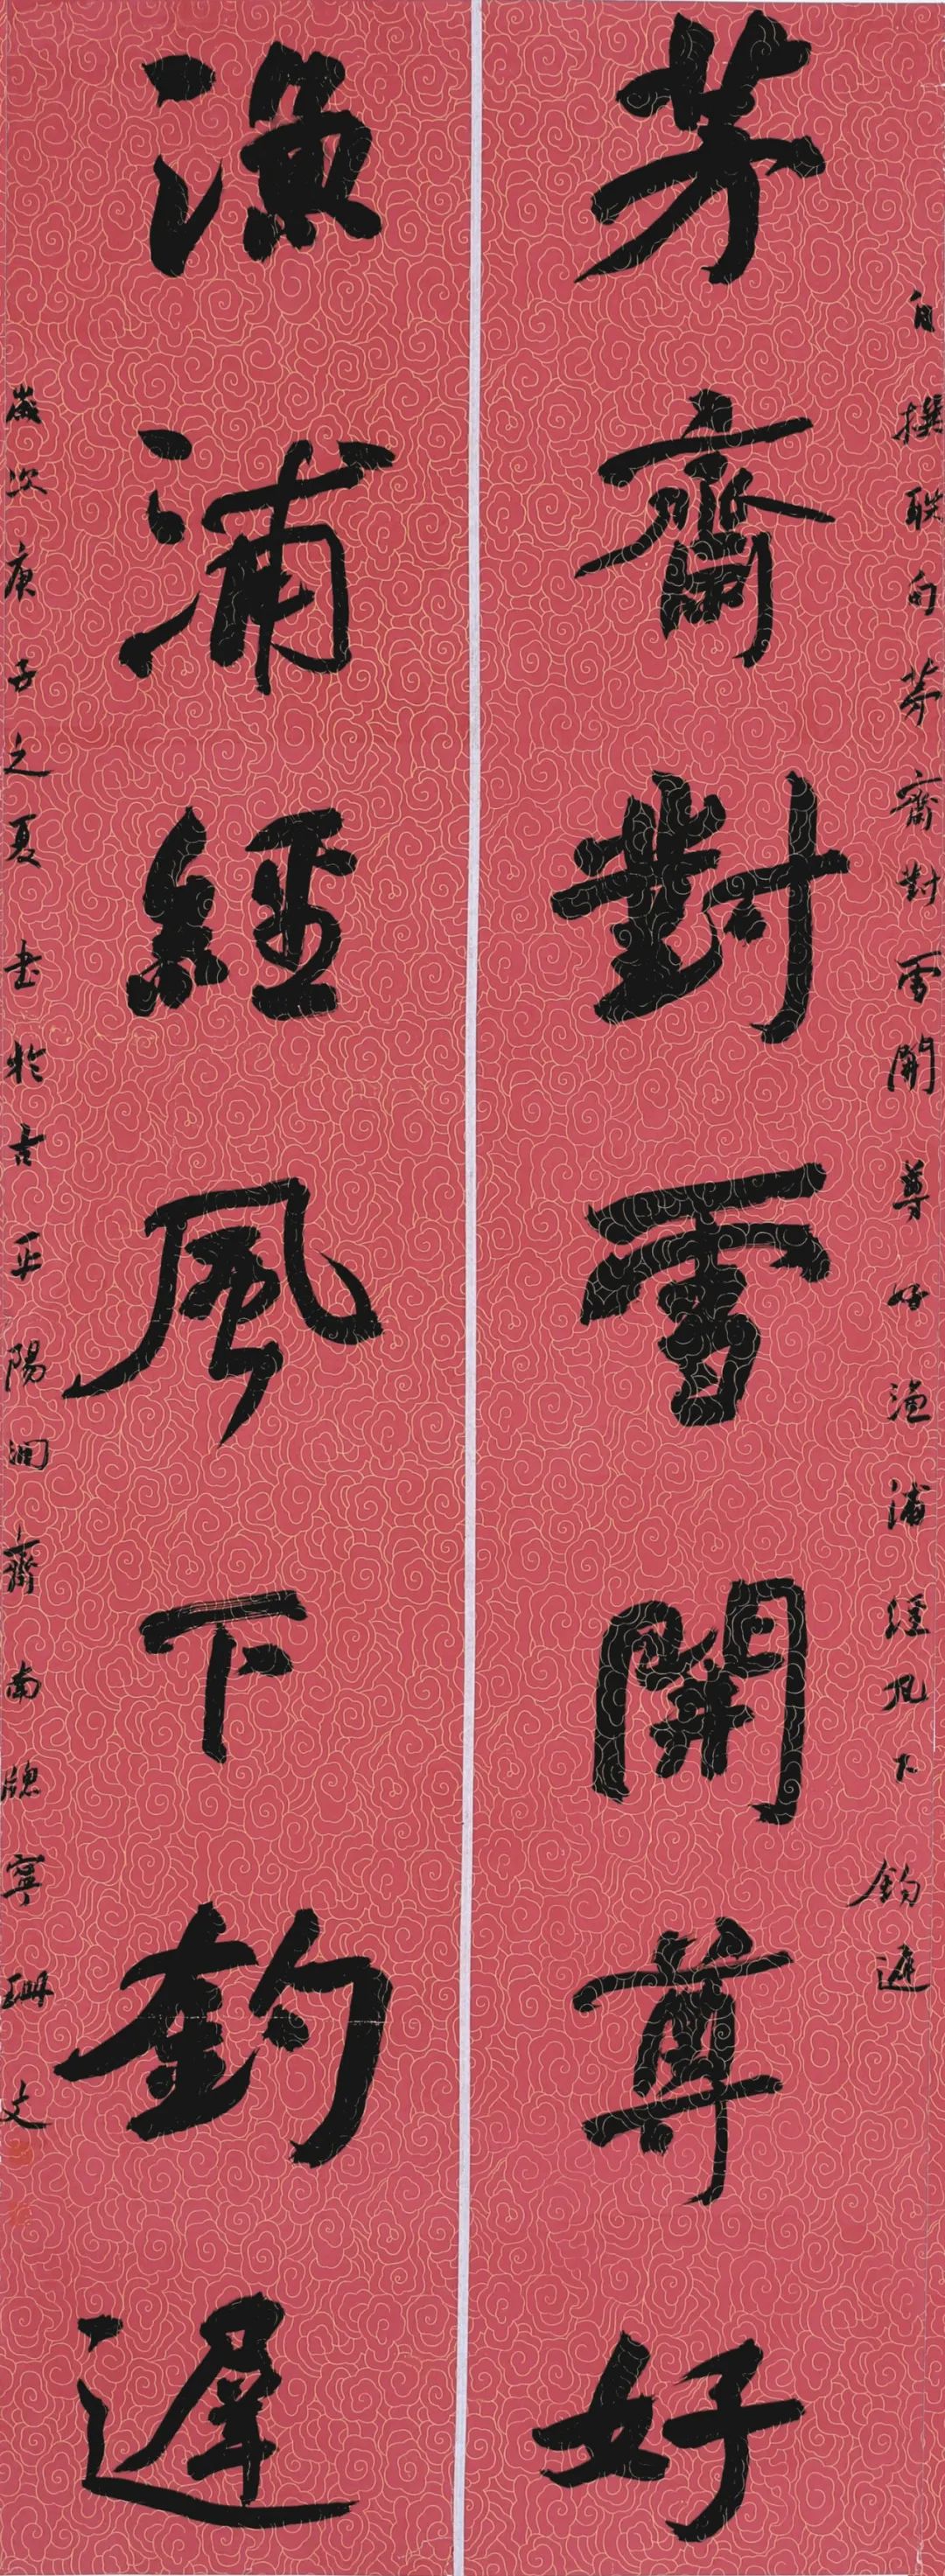 自撰联句茅齋對雪開尊好漁浦經风下釣遲
茅齋對雪開尊好
漁浦經風下釣遲
歲次庚子之夏书於古平陽洄齋南牕寧珊文